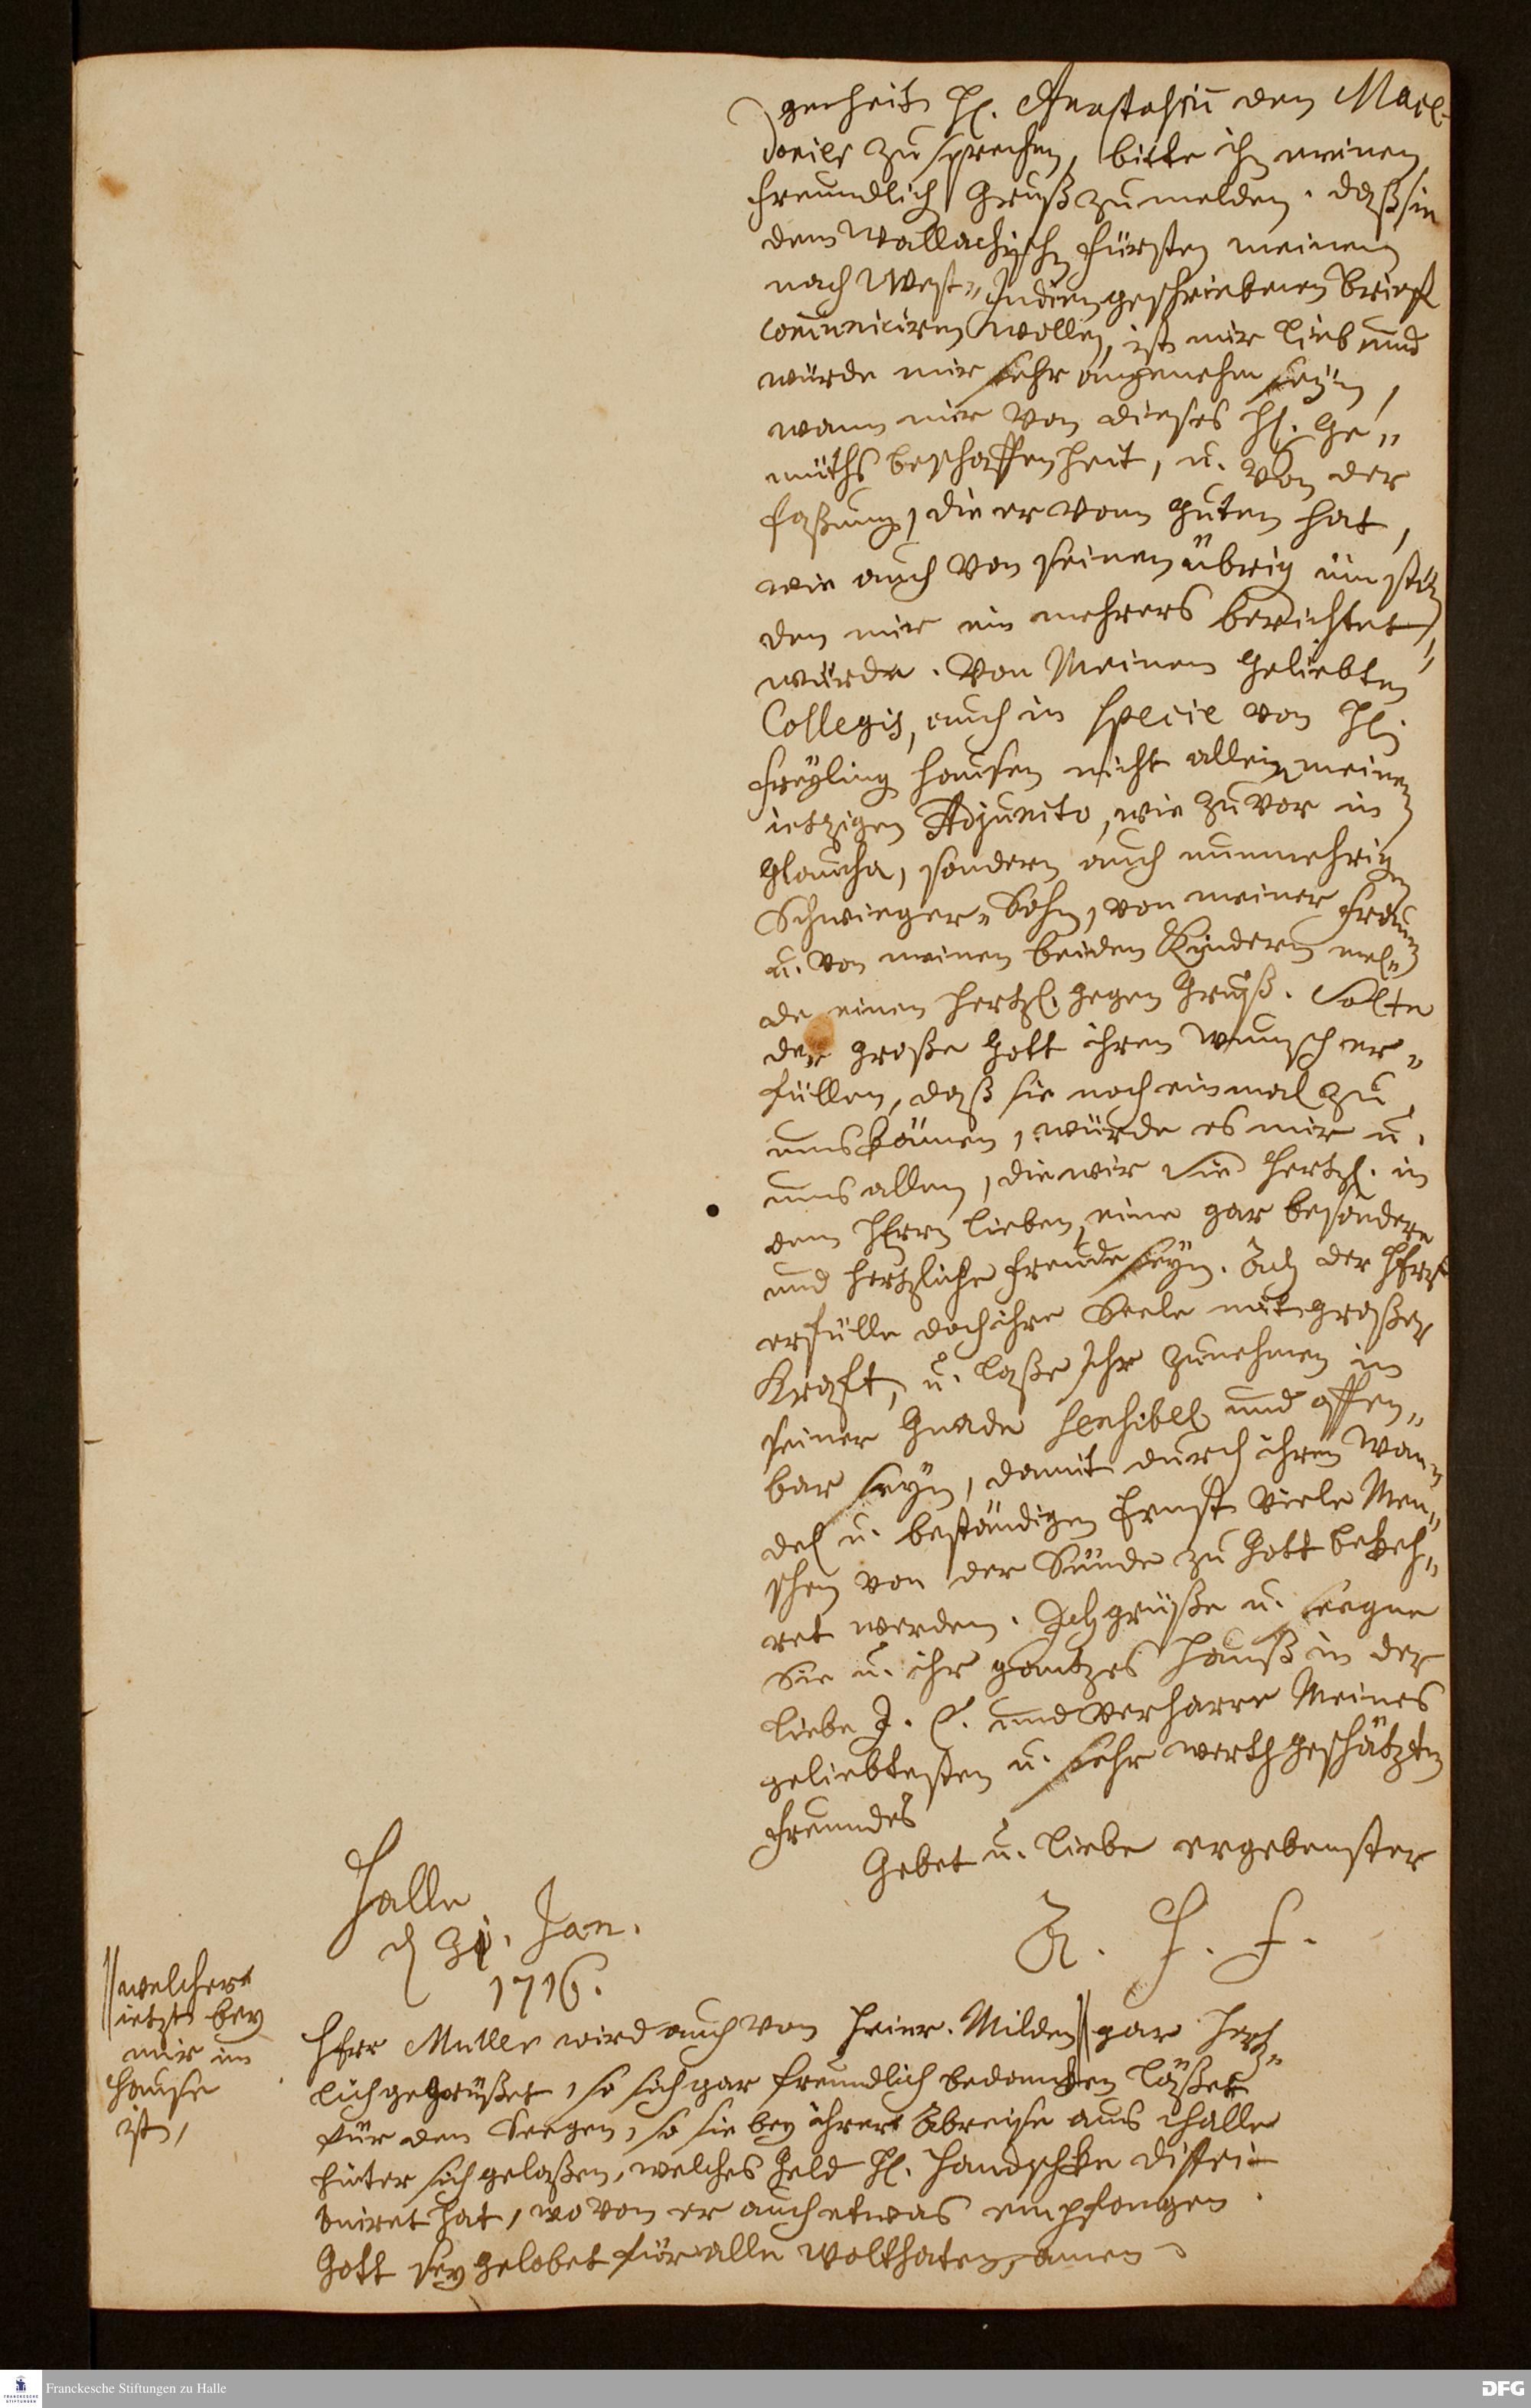 genheit H. Anastasiū den Mace-
donier zu sprechen, bitte ihm meinen
freundlich Gruß zu melden. Daß sie
dem Wallachischen Fürsten meinen
nach West-Indien geschriebenen Brieff
com̄uniciren wollen, ist mir lieb und
würde mir sehr angenehm seyn,
wann mir von dieses H. Ge-
müths beschaffenheit, u. von der
faßung, die er vom Guten hat,
wie auch von seinen übrig ümstän-
den mir ein mehrers berichtet
würde. Von Meinen geliebten
Collegis, auch in specie von H.
Freylinghausen nicht allein meinen
ietzigen Adjuncto, wie zuvor in
Glaucha, sondern auch nunmehrigen
Schwieger-Sohn, von meiner Frauen
u. von meinen beiden Kindern mel-
de einen hertzl. gegen Gruß. Solte
der große Gott ihren Wunsch er-
füllen, daß sie noch einmal zu
uns kämen, würde es mir u.
uns allen, die wir Sie hertzl. in
dem HErrn lieben, eine gar besondere
und hertzliche Freude seyn. Ach der HErr
erfülle doch ihre Seele mit großer
Krafft, u. laße Ihr zunehmen in
seiner Gnade sensibel und offen-
bar seyn, damit durch ihren Wan-
del u. beständigen Ernst viele Men-
schen von der Sünde zu Gott bekeh-
ret werden. Ich grüße u. seegne
Sie u. ihr gantzes Hauß in der
Liebe J. C. und verharre Meines
geliebtesten u. sehr werth geschätzten
Freundes
Gebet u. Liebe ergebenster
A. H. F.
Halle
d 31. Jan.
1716.
Herr Muller wird auch von Heinr. Milden || gar hertz-
lich gegrüßet, so sich gar freundlich bedancken läßet
für den Seegen, so sie bey ihrer Abreise aus Halle
hinter sich gelaßen, welches Geld H. Handschke distri-
buiret hat, wovon er auch etwas empfangen.
Gott sey gelobet für alle Wolthaten, amen
|| welcher
ietzt bey
mir im
Hause
ist,
Franckesche Stiftungen zu Halle
DFG